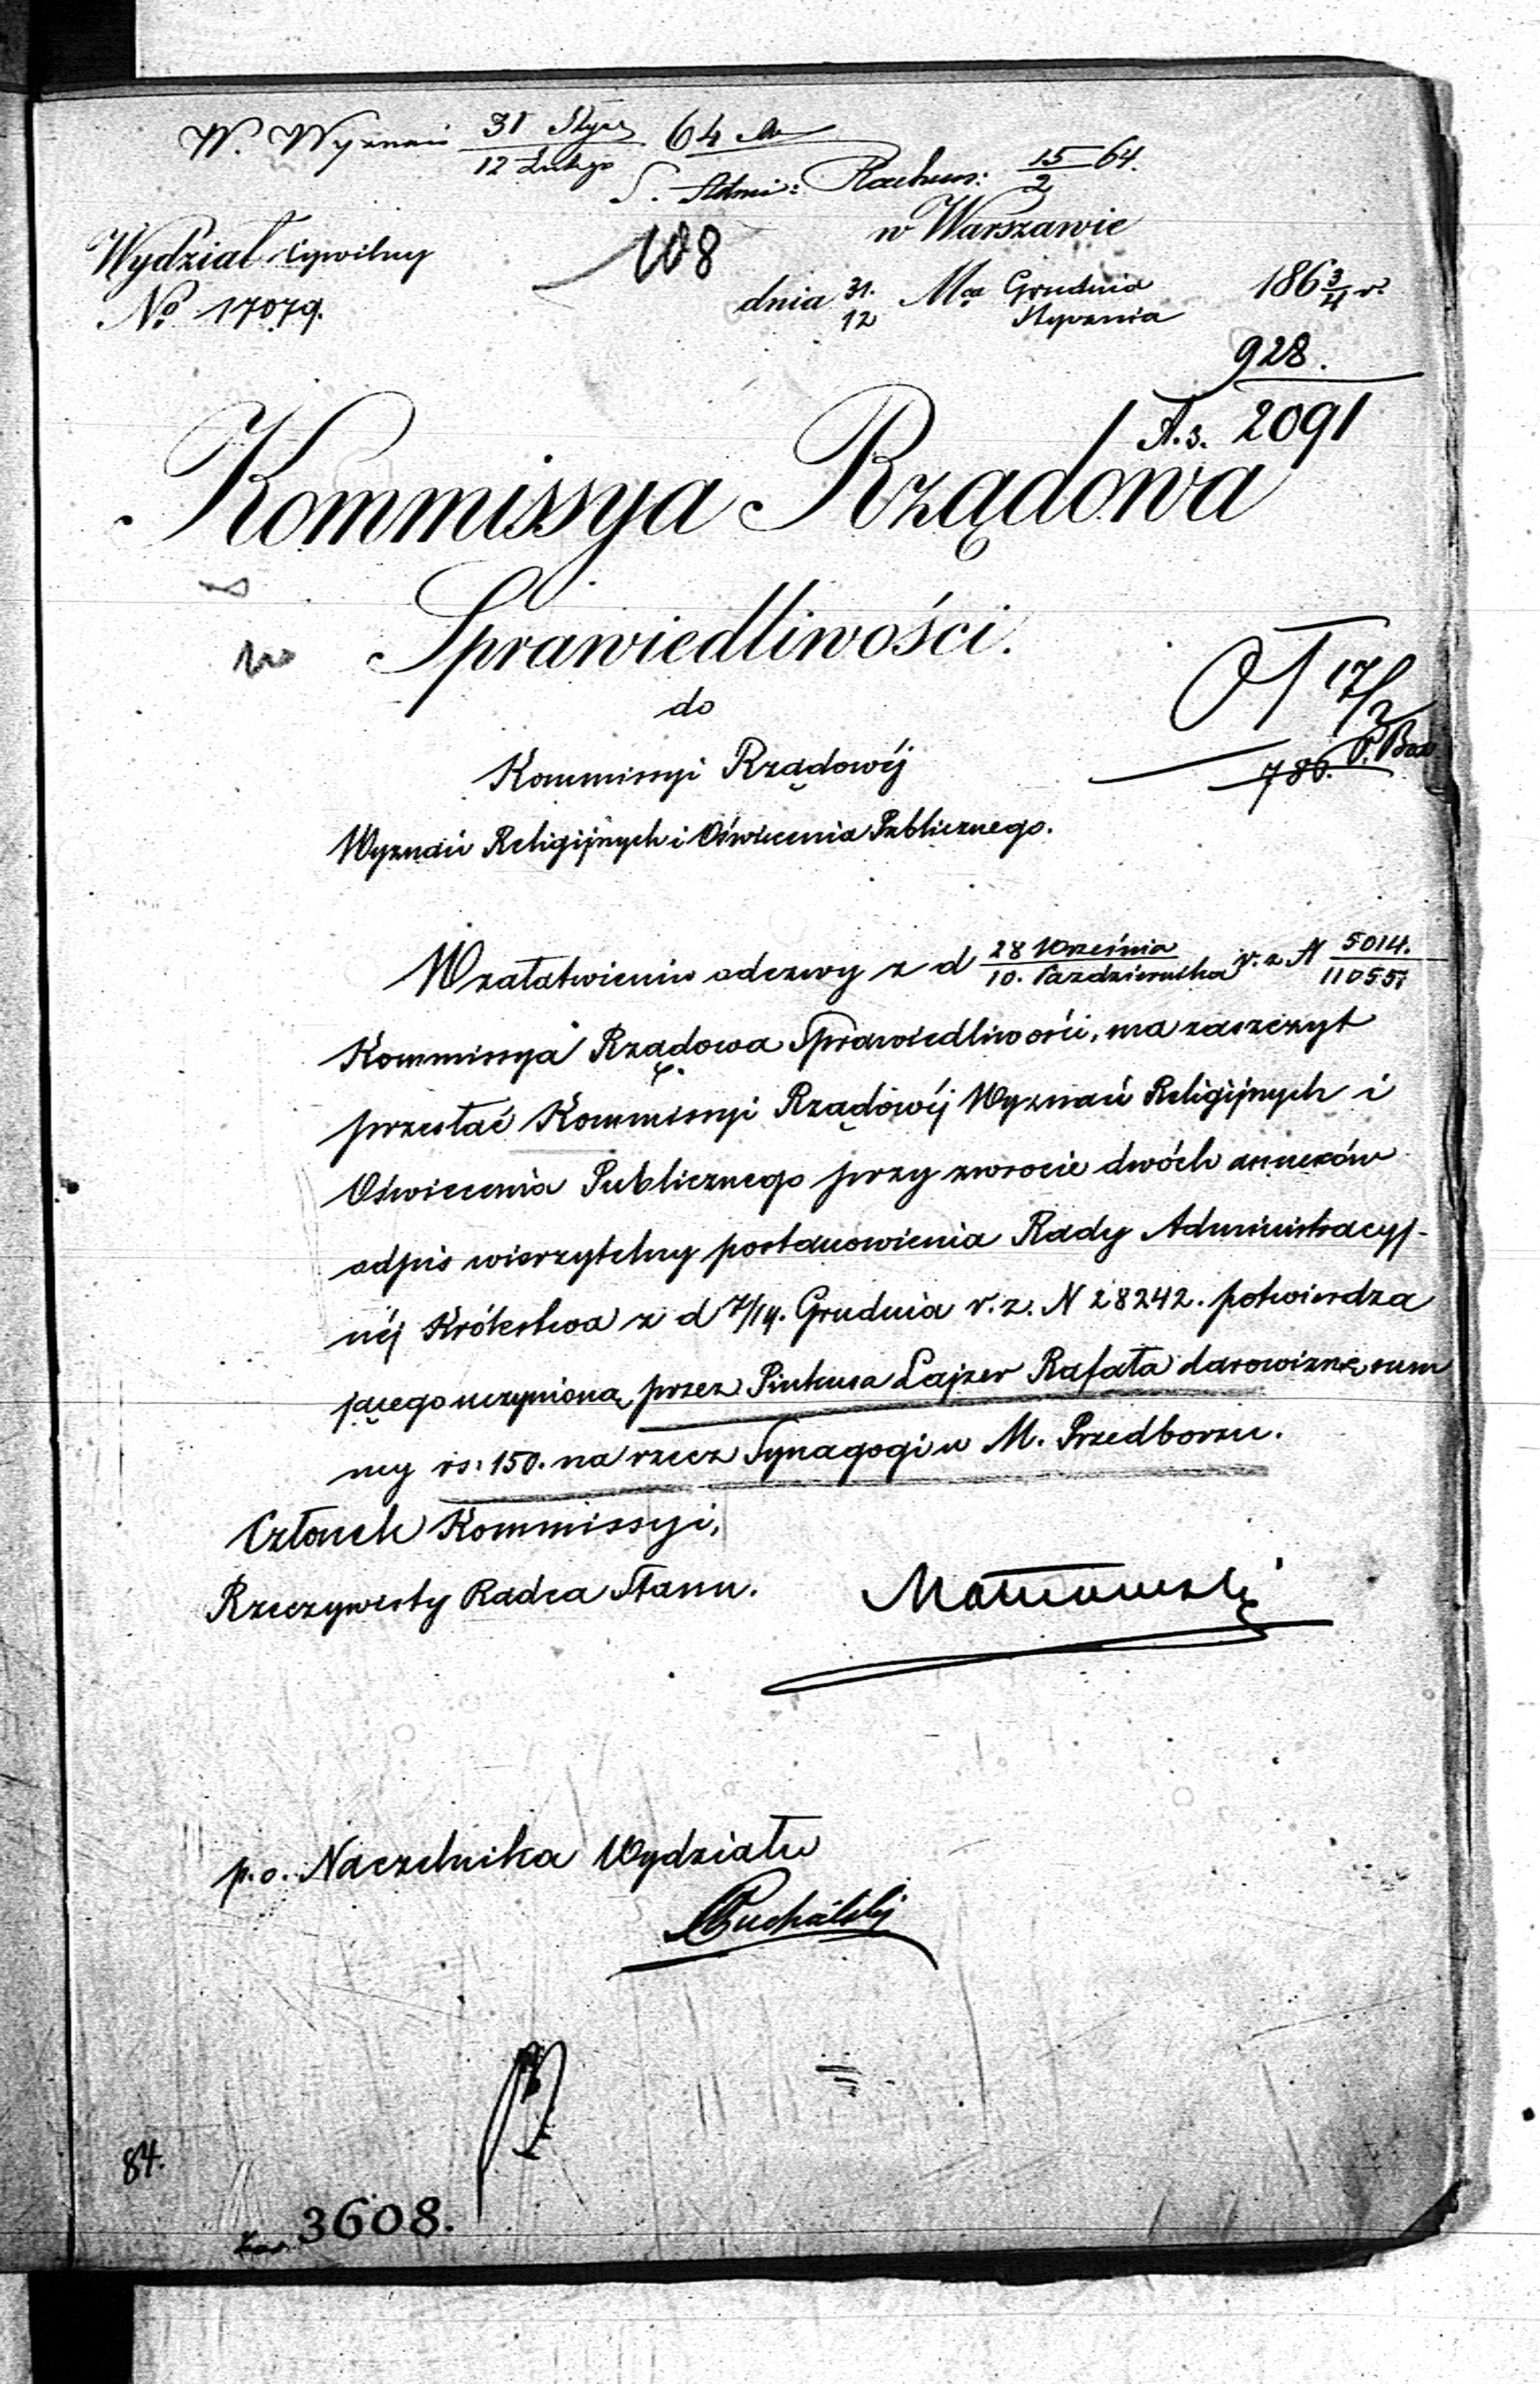 W. Wyznań 31 Stycz / 12 Lutego 64
S. Admi: Rachun: 15/2 64.
w Warszawie
Wydział Cywilny
108
No 17079.
dnia 31. / 12 Mca Grudnia / Stycznia 186 3/4 r.
928.
A.s. 2091
Kommissya Rządowa
Sprawiedliwości.
do
17/2
Kommissyi Rządowéj
786.
Wyznań Religijnych i Oświecenia Publicznego.
W załatwieniu odezwy z d 28 Września / 10. Października r. z. N 5014. / 11055
Kommissya Rządowa Sprawiedliwości, ma zaszczyt
przesłać Kommissyi Rządowéj Wyznań Religijnych i
Oświecenia Publicznego przy zwrocie dwóch annexów
odpis wierzytelny postanowienia Rady Administracyj-
néj Królestwa z d 7/19. Grudnia r. z. N 28242. potwierdza
jącego uczynioną przez Pinkusa Lajzer Rafała darowiznę sum
my rs: 150. na rzecz Synagogi w M. Przedborzu.
Członek Kommissyi,
Rzeczywisty Radca Stanu.
p. o. Naczelnika Wydziału
Puchalski
84.
3608.